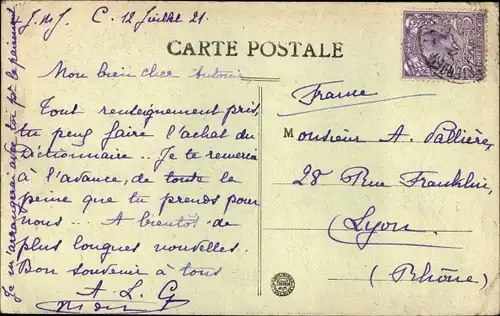 + J.M.J. C. 12 Juillet 21.
CARTE POSTALE
Mon bien cher Antonin,
Tout renseignement pris,
tu peux faire l'achat du
Dictionnaire .. Je te remercie
à l'avance, de toute la
peine que tu prends pour
nous ... A bientôt de
plus longues nouvelles.
Bon souvenir à tous
A. L. G
Je m'arrangerai avec toi pr le paiement
France
Monsieur A. Vallière,
28 Rue Franklin,
Lyon.
(Rhône)